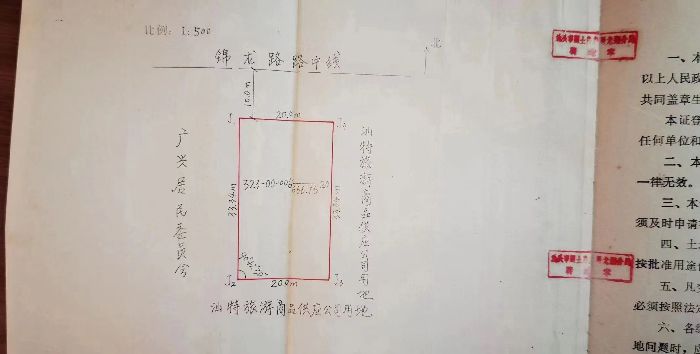 比例：1:500
北
锦龙路路中线
10.0m
J1
20.0m
J4
广兴居民委员会
33.34m
323-00-006
汕特旅游商品供应公司用地
J2
20.0m
J3
汕特旅游商品供应公司用地
一、本
以上人民政
共同盖章生
本证登
任何单位和
二、本
一律无效。
三、本
须及时申请
四、土
按批准用途
五、凡
必须按照法定
六、各
地问题时，